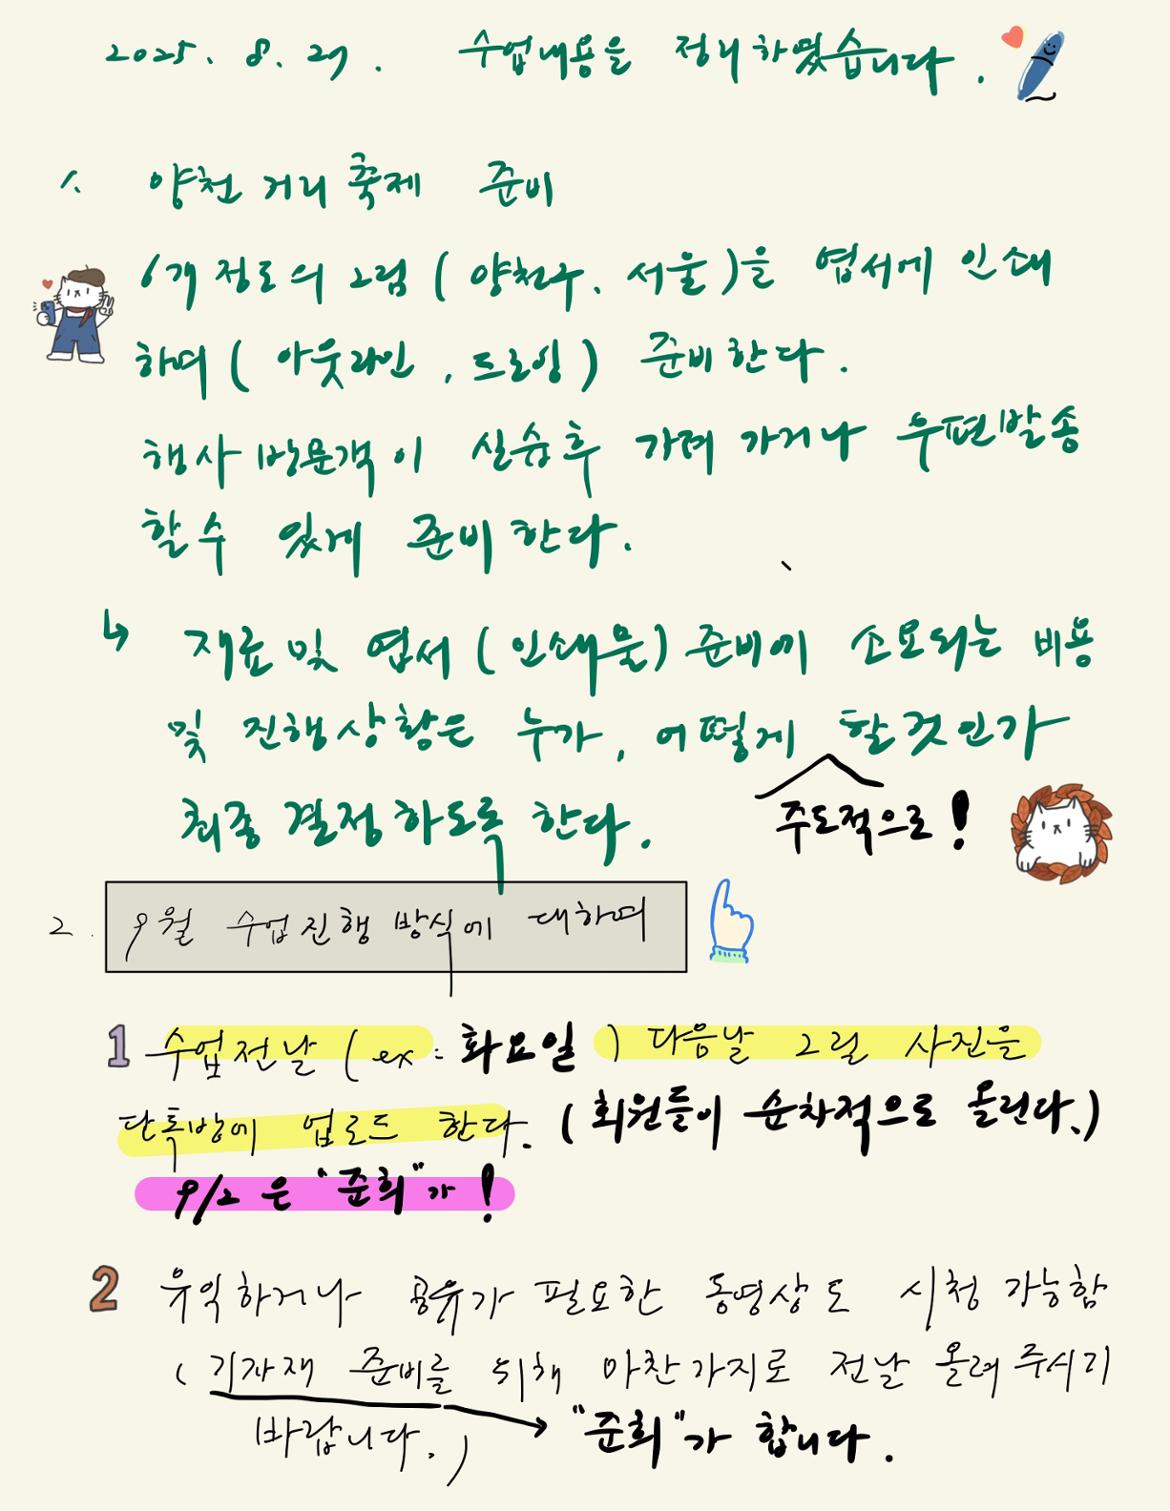 2025. 8. 27. 수업내용을 정리하였습니다.
1. 양천거리축제 준비
6개 정도의 그림 (양천구, 서울)을 엽서에 인쇄
하며 (아웃라인, 드로잉) 준비한다.
행사 방문객이 실습후 가져 가거나 우편발송
할수 있게 준비한다.
↳ 재료 및 엽서 (인쇄물) 준비에 소모되는 비용
및 진행상황은 누가, 어떻게 할것인가
주도적으로!
최종 결정하도록 한다.
2. 9월 수업진행 방식에 대하여
1 수업전날 (ex: 화요일) 다음날 그릴 사진을
단톡방에 업로드 한다. (회원들이 순차적으로 올린다.)
9/2 은 "준희"가!
2 유익하거나 공유가 필요한 동영상도 시청 가능함
(기자재 준비를 위해 마찬가지로 전날 올려주시기
바랍니다.) → "준희"가 합니다.